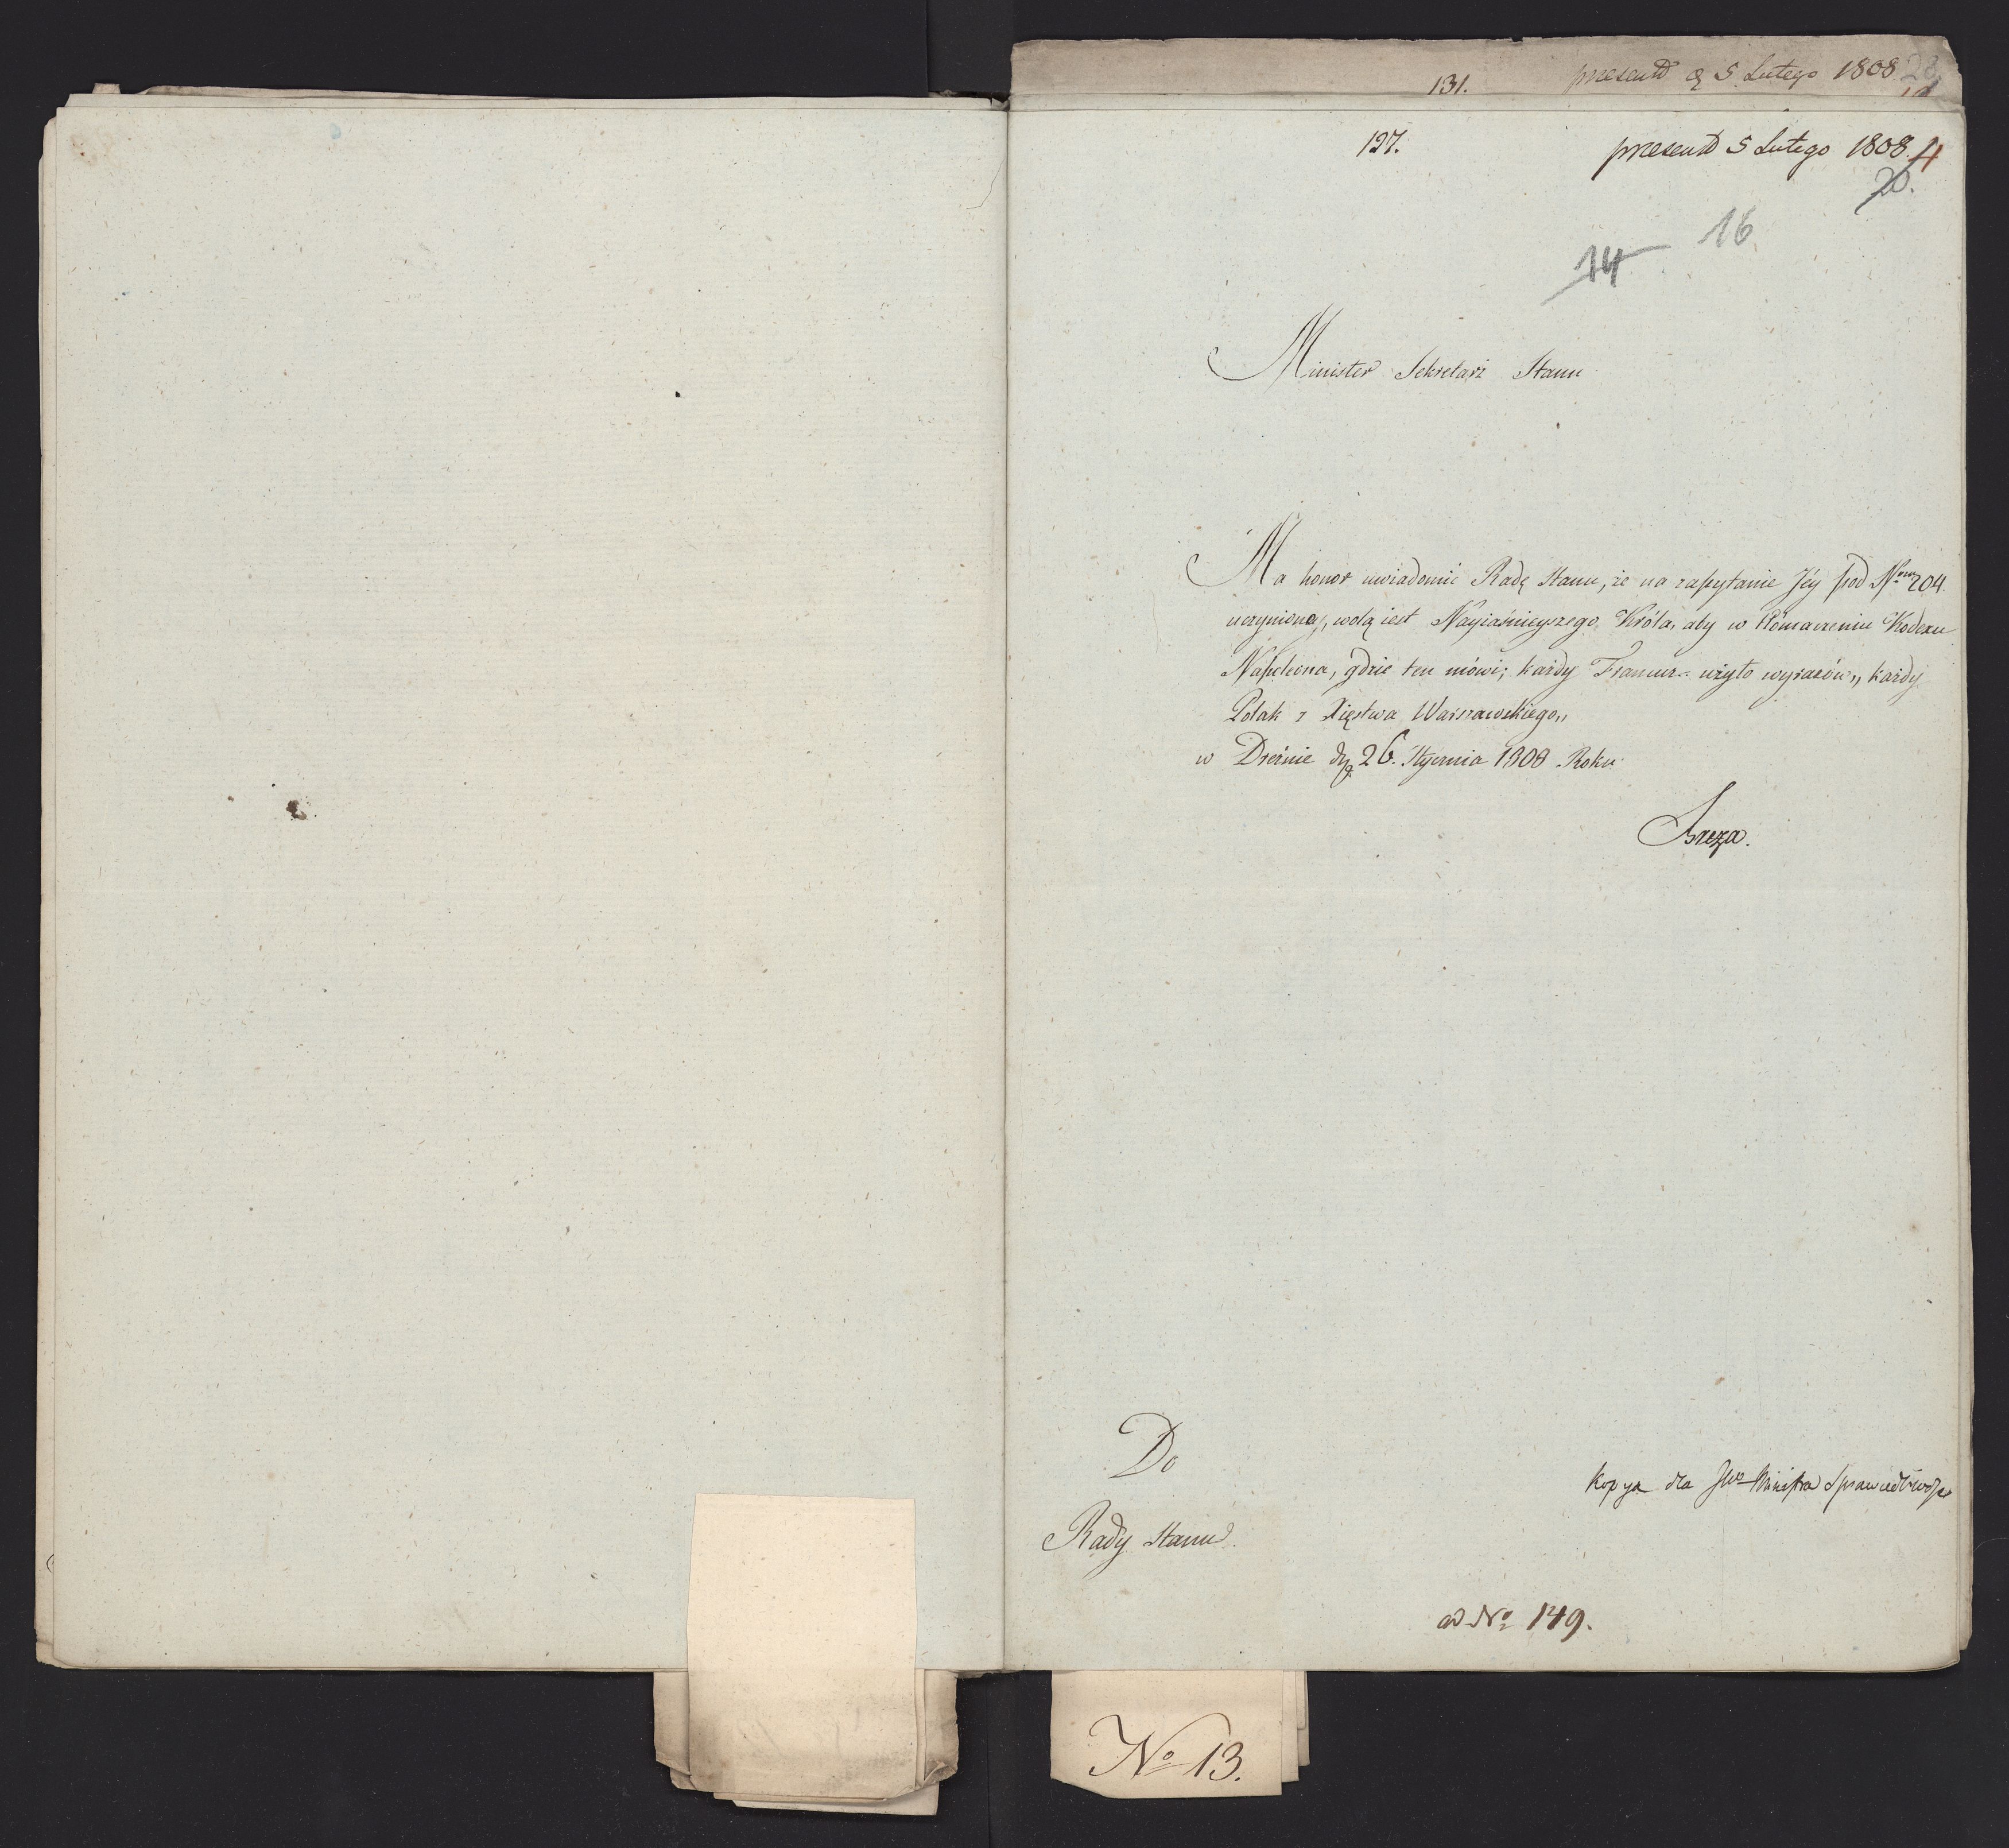 131. praesentd d 5 Lutego 1808 28
127. praesentd 5 Lutego 1808. 4
20.
16
14
Minister Sekretarz Stanu
Ma honor uwiadomić Radę Stanu, że na zapytanie Jéy pod Nrem 204
uczynione, wolą iest Nayiaśnieyszego Króla, aby w tłómaczeniu Kodexu
Napoleona, gdzie ten mówi; każdy Francuz użyto wyrazów „każdy
Polak z Xięstwa Warszawskiego„
w Dreźnie dn. 26. Stycznia 1808 Roku
Breza.
Do
Rady Stanu.
Kopya dla JWo Ministra Sprawiedliwości
ad No 149.
No 13.